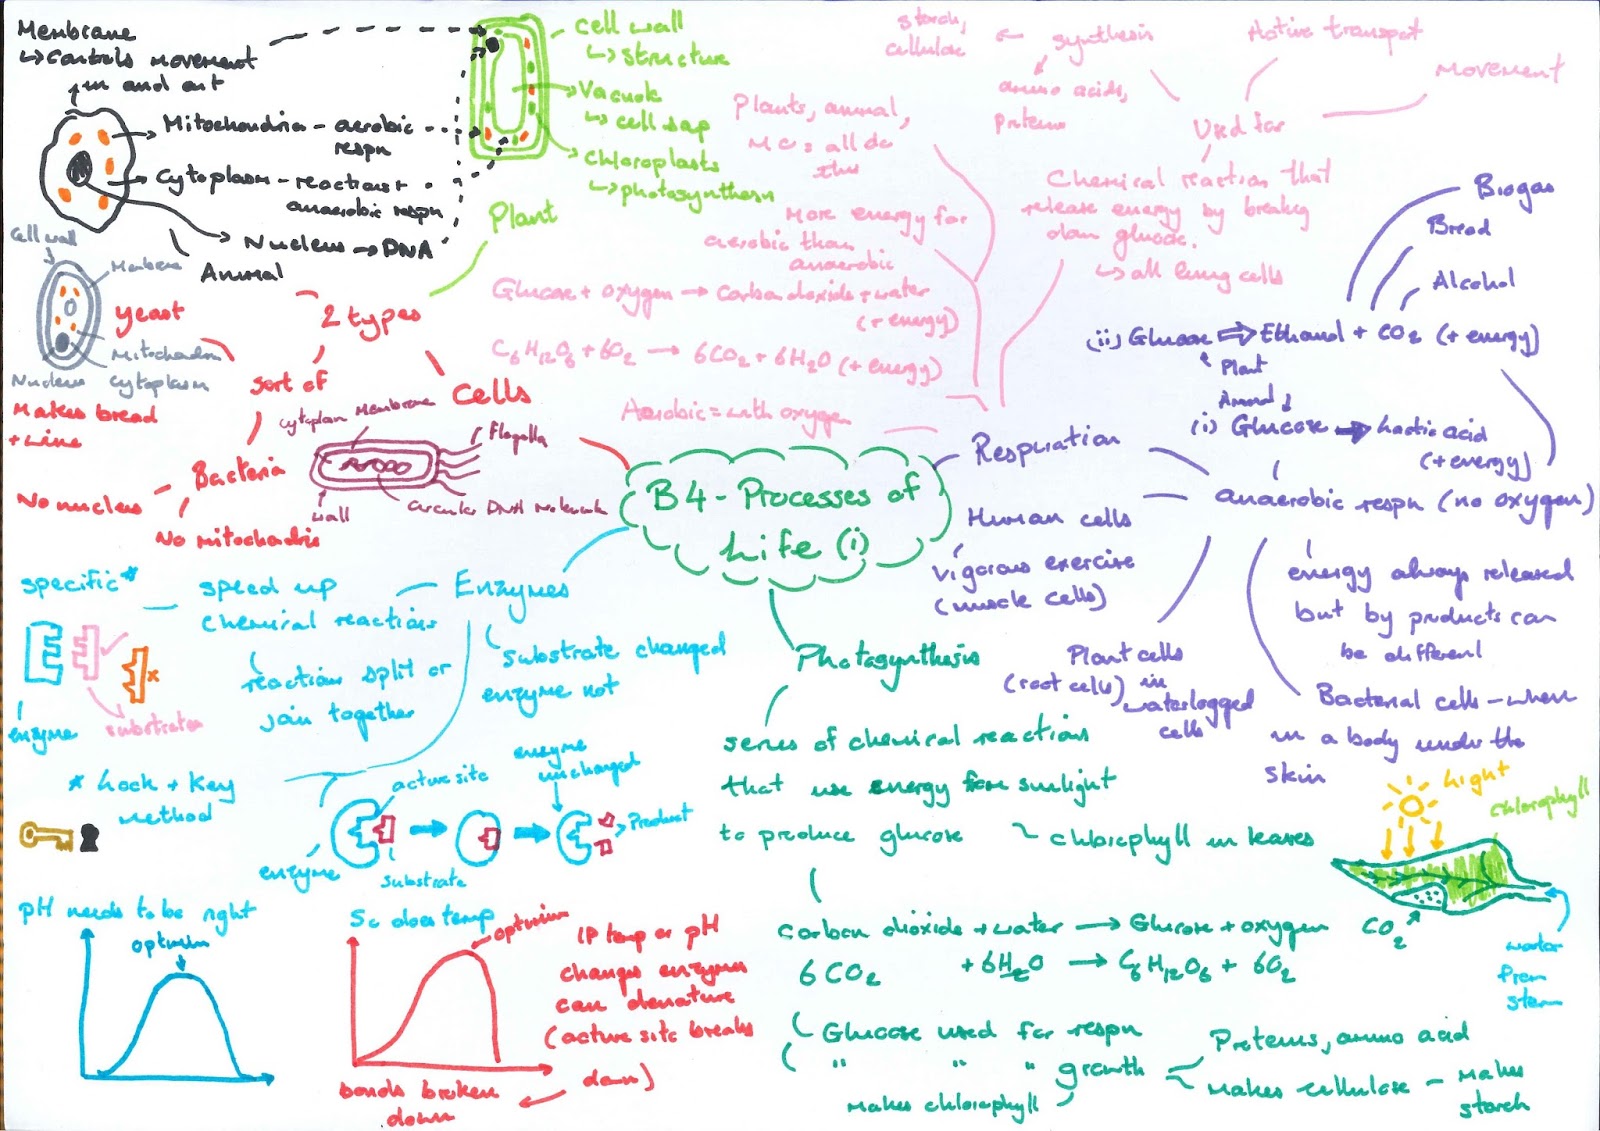 Membrane
↳ controls movement
in and out
Mitochondria - aerobic
respn
Cytoplasm - reactions +
anaerobic respn
Nucleus → DNA
Animal
cell wall
↳ structure
Vacuole
↳ cell sap
chloroplasts
↳ photosynthesn
Plant
cell wall
Membrane
Mitochondria
cytoplasm
Nucleus
yeast
Makes bread
+ wine
2 types
sort of
cells
Bacteria
No nucleus
No mitochondria
cytoplasm
Membrane
Flagella
wall
circular DNA Molecule
B4 - Processes of
Life (i)
starch,
cellulose
synthesis
amino acids,
proteins
Active transport
Movement
Used for
Plants, animal,
MC: all do
this
Chemical reaction that
release energy by breakg
down glucose.
↳ all living cells
More energy for
aerobic than
anaerobic
Glucose + oxygen → carbon dioxide + water
(+ energy)
C6H12O6 + 6O2 → 6CO2 + 6H2O (+ energy)
Aerobic = with oxygen
Respiration
Biogas
Bread
Alcohol
(ii) Glucose ⇒ Ethanol + CO2 (+ energy)
Plant
Animal
(i) Glucose → Lactic acid
(+ energy)
anaerobic respn (no oxygen)
Human cells
vigorous exercise
(muscle cells)
Plant cells
(root cells) in
waterlogged
cells
energy always released
but by products can
be different
Bacterial cells - when
in a body under the
skin
Enzymes
speed up
chemical reactions
specific*
enzyme
substrates
reactions split or
join together
substrate changed
enzyme not
* Lock + Key
method
active site
enzyme
unchanged
Product
enzyme
substrate
pH needs to be right
optimum
So does temp
optimum
If temp or pH
changes enzymes
can denature
(active site breaks
down)
bonds broken
down
Photosynthesis
series of chemical reactions
that use energy from sunlight
to produce glucose
chlorophyll in leaves
Light
chlorophyll
CO2
water
from
stem
carbon dioxide + water → Glucose + oxygen
6CO2 + 6H2O → C6H12O6 + 6O2
Glucose used for respn
" " " growth
Makes chlorophyll
Proteins, amino acid
Makes cellulose - Makes
starch